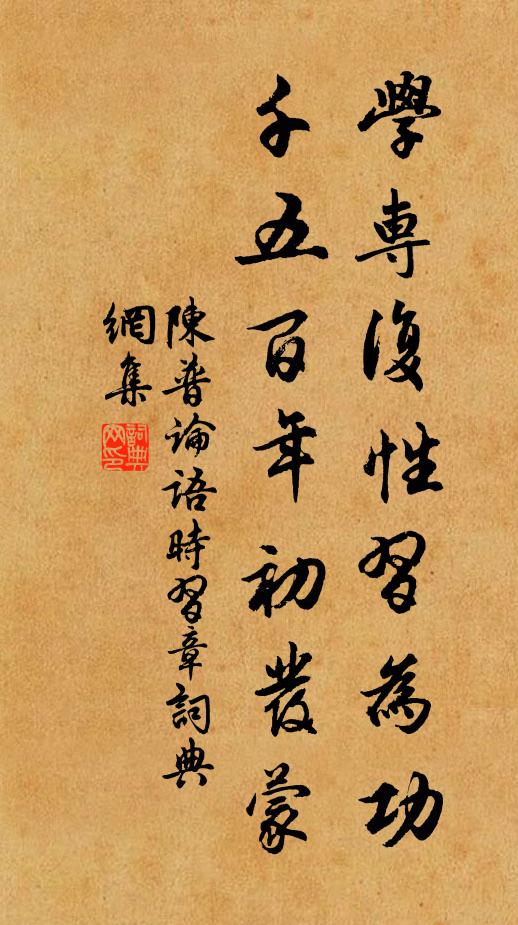 學專復性習為功
千五百年初發蒙
陳普論語時習章詞典
網集
詞典
网印